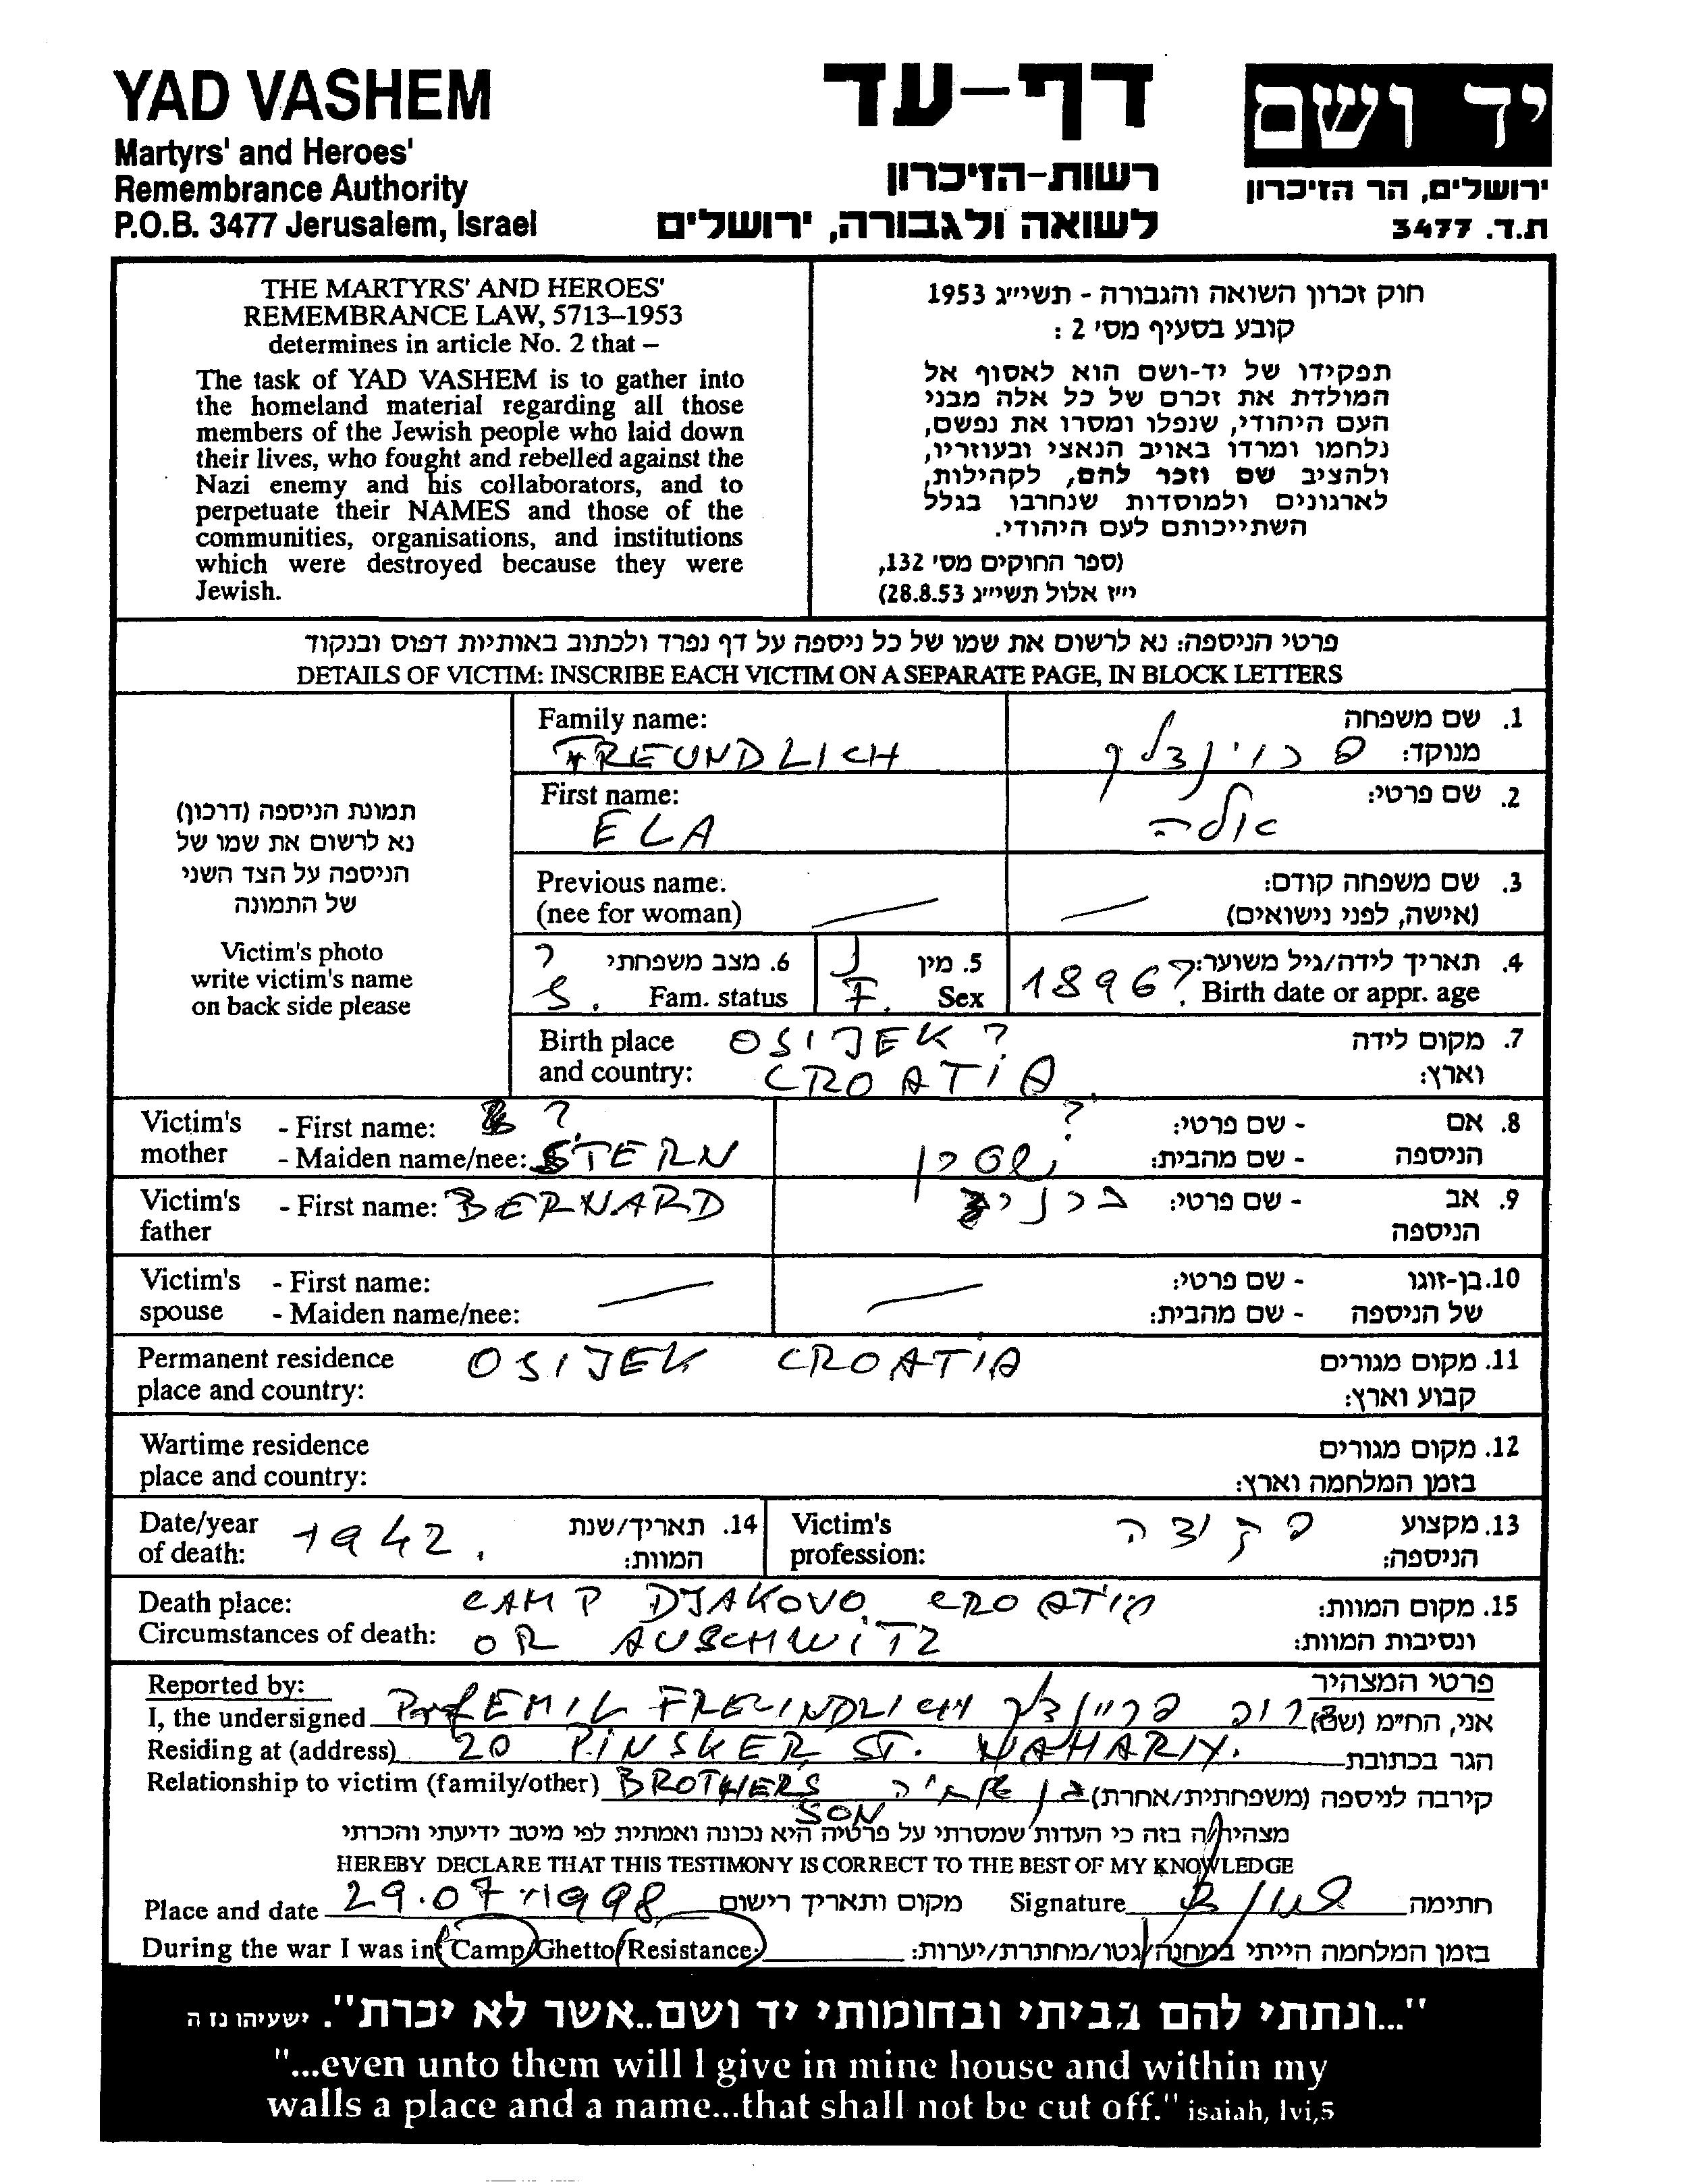 YAD VASHEM
Martyrs' and Heroes'
Remembrance Authority
P.O.B. 3477 Jerusalem, Israel
דף-עד
רשות-הזיכרון
לשואה ולגבורה, ירושלים
יד ושם
ירושלים, הר הזיכרון
ת.ד. 3477
THE MARTYRS' AND HEROES'
REMEMBRANCE LAW, 5713–1953
determines in article No. 2 that –
The task of YAD VASHEM is to gather into
the homeland material regarding all those
members of the Jewish people who laid down
their lives, who fought and rebelled against the
Nazi enemy and his collaborators, and to
perpetuate their NAMES and those of the
communities, organisations, and institutions
which were destroyed because they were
Jewish.
חוק זכרון השואה והגבורה - תשי״ג 1953
קובע בסעיף מס' 2 :
תפקידו של יד-ושם הוא לאסוף אל
המולדת את זכרם של כל אלה מבני
העם היהודי, שנפלו ומסרו את נפשם,
נלחמו ומרדו באויב הנאצי ובעוזריו,
ולהציב שם וזכר להם, לקהילות,
לארגונים ולמוסדות שנחרבו בגלל
השתייכותם לעם היהודי.
(ספר החוקים מס' 132,
י״ז אלול תשי״ג 28.8.53)
פרטי הניספה: נא לרשום את שמו של כל ניספה על דף נפרד ולכתוב באותיות דפוס ובנקוד
DETAILS OF VICTIM: INSCRIBE EACH VICTIM ON A SEPARATE PAGE, IN BLOCK LETTERS
תמונת הניספה (דרכון)
נא לרשום את שמו של
הניספה על הצד השני
של התמונה
Victim's photo
write victim's name
on back side please
Family name: 1. שם משפחה
FREUNDLICH פרוינדליך מנוקד:
First name: 2. שם פרטי:
ELA אלה
Previous name: 3. שם משפחה קודם:
(nee for woman) (אישה, לפני נישואים)
? 6. מצב משפחתי 5. מין 4. תאריך לידה/גיל משוער:
S. Fam. status F. Sex 1896? Birth date or appr. age
Birth place OSIJEK ? 7. מקום לידה
and country: CROATIA וארץ:
Victim's - First name: ? ? - שם פרטי: 8. אם
mother - Maiden name/nee: STERN שטרן - שם מהבית: הניספה
Victim's - First name: BERNARD - שם פרטי: 9. אב
father הניספה
Victim's - First name: - שם פרטי: 10. בן-זוגו
spouse - Maiden name/nee: - שם מהבית: של הניספה
Permanent residence OSIJEK CROATIA 11. מקום מגורים
place and country: קבוע וארץ:
Wartime residence 12. מקום מגורים
place and country: בזמן המלחמה וארץ:
Date/year 1942. 14. תאריך/שנת Victim's פקידה 13. מקצוע
of death: המוות: profession: הניספה:
Death place: CAMP DJAKOVO CROATIA 15. מקום המוות:
Circumstances of death: OR AUSCHWITZ ונסיבות המוות:
Reported by: פרטי המצהיר
I, the undersigned Prof EMIL FREUNDLICH פרוינדליך אני, החי״מ (שם)
Residing at (address) 20 PINSKER ST. NAHARIY. הגר בכתובת
Relationship to victim (family/other) BROTHERS בן אחיה קירבה לניספה (משפחתית/אחרת)
SON
מצהיר/ה בזה כי העדות שמסרתי על פרטיה היא נכונה ואמתית לפי מיטב ידיעתי והכרתי
HEREBY DECLARE THAT THIS TESTIMONY IS CORRECT TO THE BEST OF MY KNOWLEDGE
Place and date 29.07.1998 מקום ותאריך רישום Signature חתימה
During the war I was in( Camp/Ghetto/Resistance: בזמן המלחמה הייתי במחנה/גטו/מחתרת/יערות:
"...ונתתי להם בביתי ובחומותי יד ושם..אשר לא יכרת". ישעיהו נו ה
"...even unto them will I give in mine house and within my
walls a place and a name...that shall not be cut off." isaiah, lvi,5